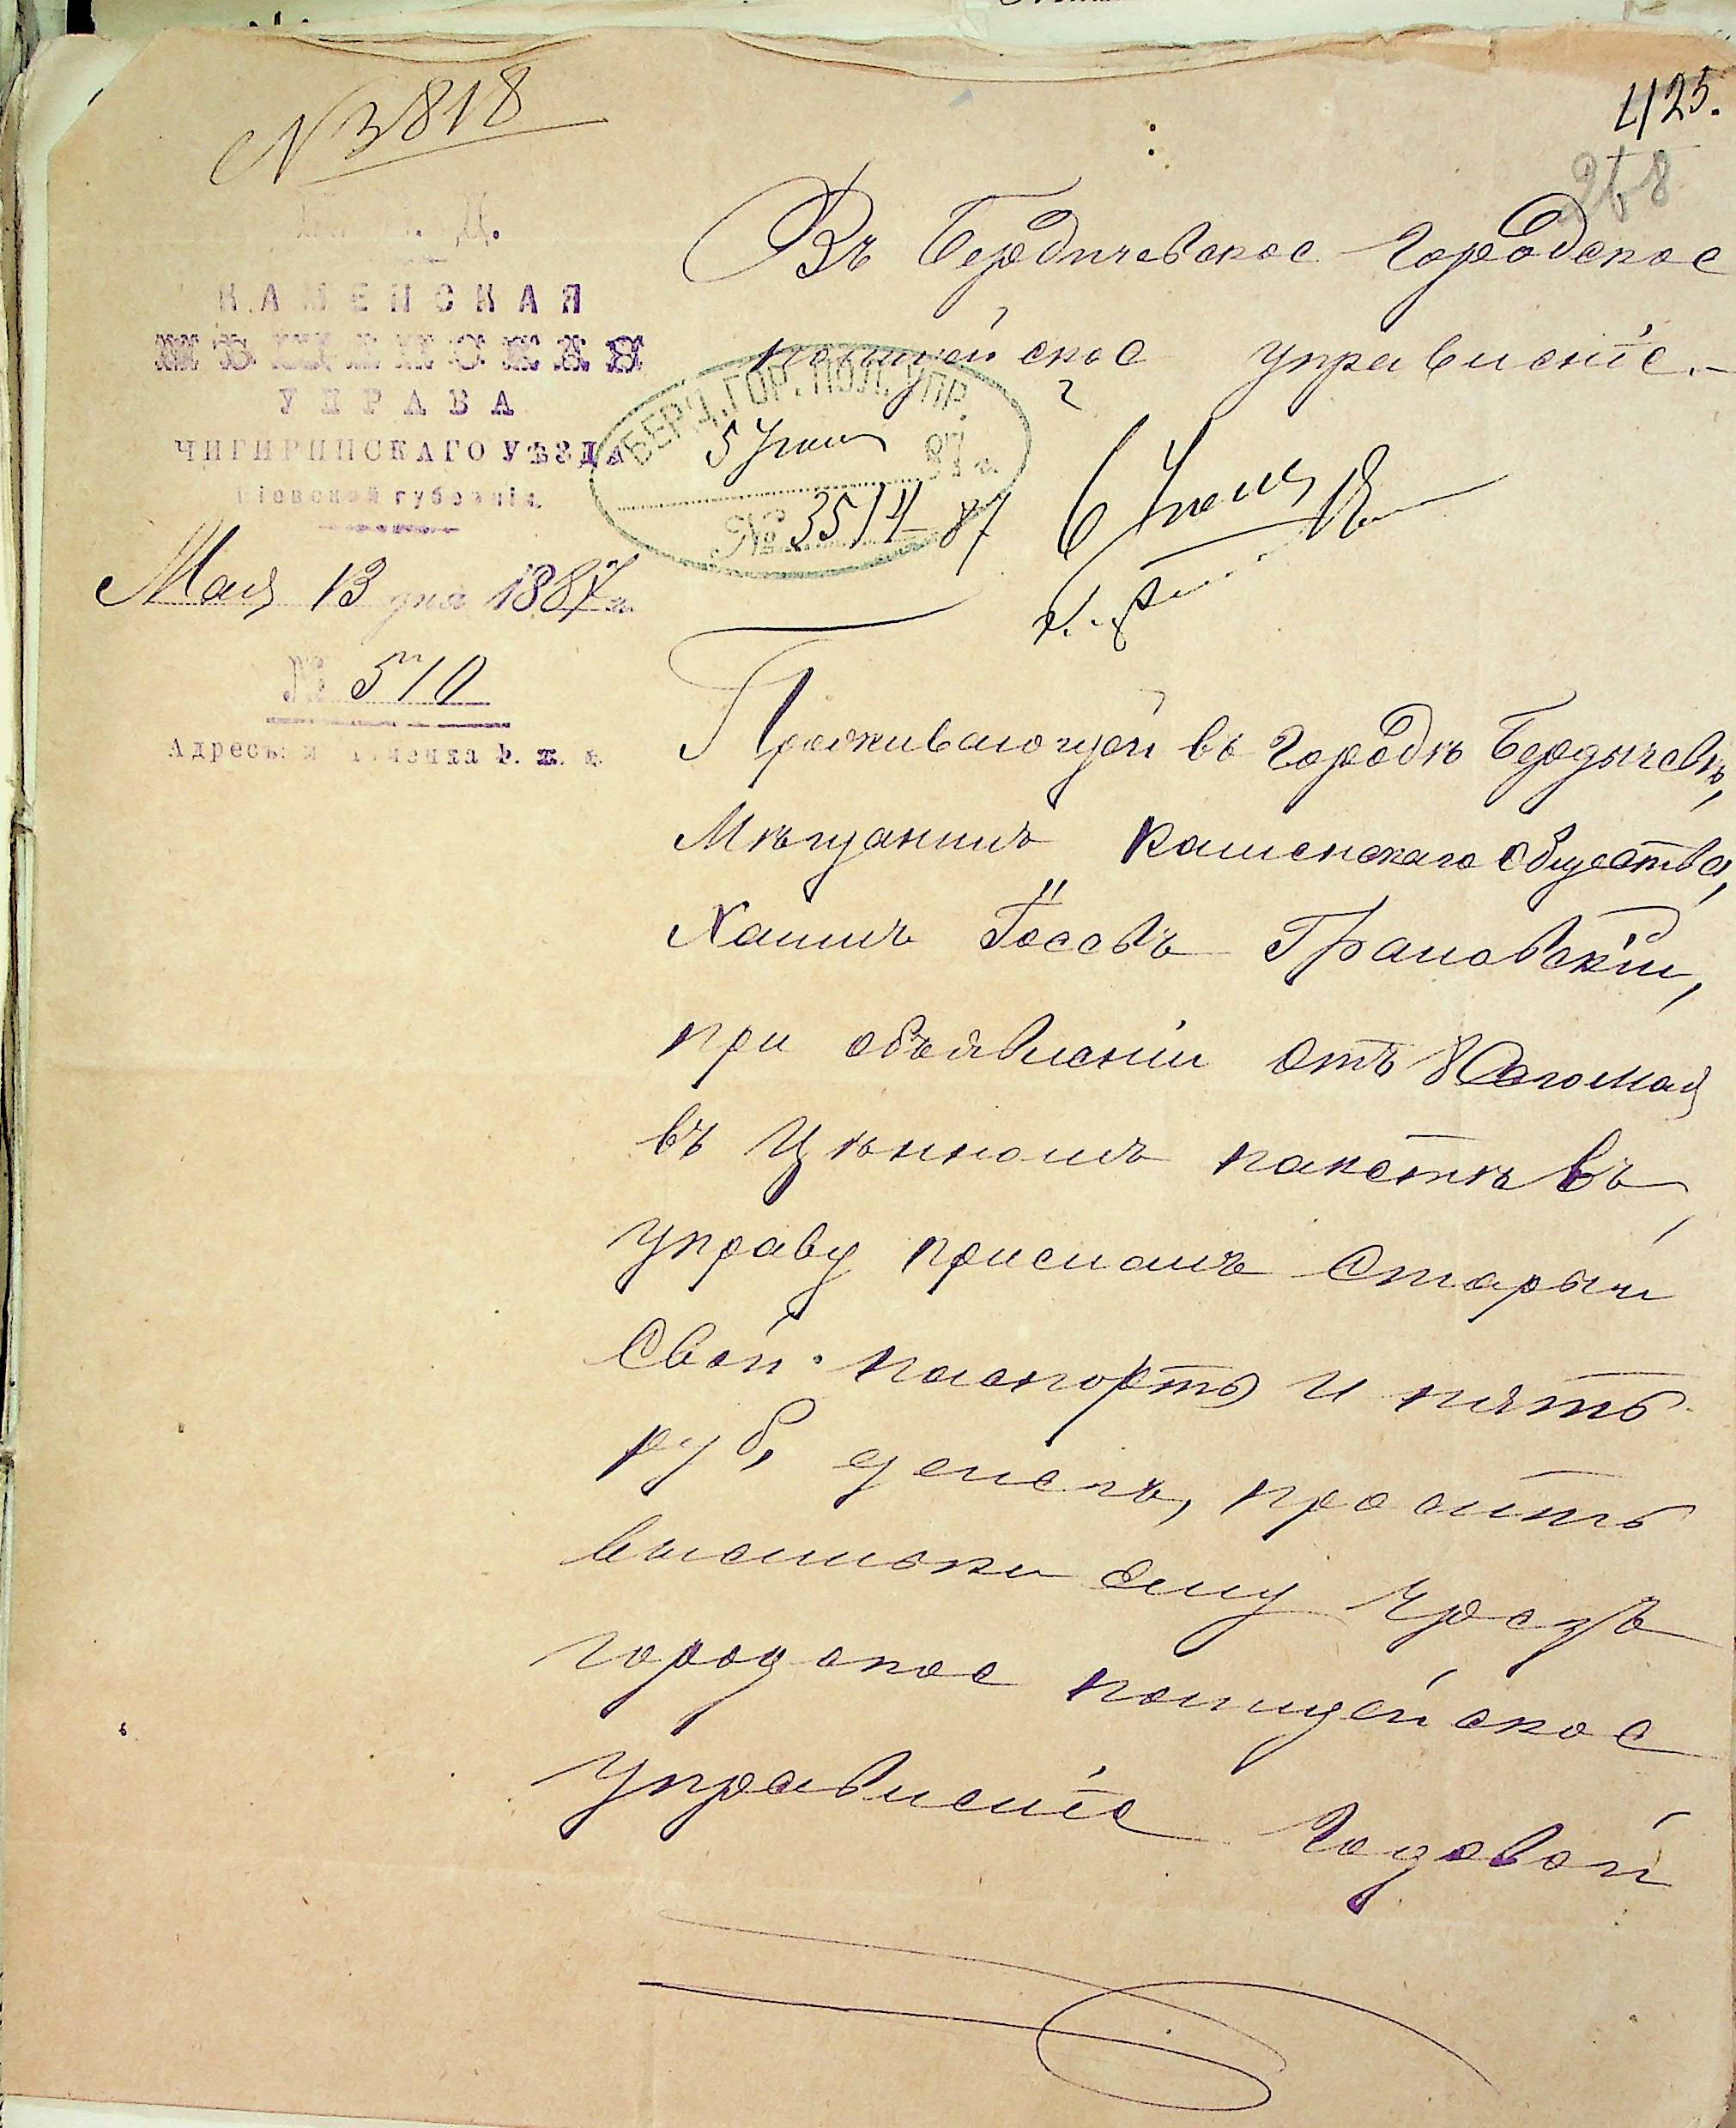 № 3818
425.
268
М. В. Д.
КАМЕНСКАЯ
МѢЩАНСКАЯ
УПРАВА
ЧИГИРИНСКАГО УѢЗДА
Кіевской губерніи.
Мая 13 дня 1887 г.
№ 510
Адресъ: м. Каменка Ф. ж. д.
Въ Бердичевское Городское
полицейское управленіе.-
БЕРД. ГОР. ПОЛ. УПР.
5 Іюня 87 г.
№ 3514 87
6 Іюня
Проживающей въ Городѣ Бердычевѣ,
Мѣщанинъ Каменскаго Общества,
Хаимъ Іосевъ Грановскій,
при объявленіи отъ 8 Сего мая
въ Цѣнномъ пакетѣ въ
управу приславъ Старый
Свой паспортъ и пять
руб, денегъ, проситъ
высылки ему Чрезъ
городское полицейское
управленіе Годовой